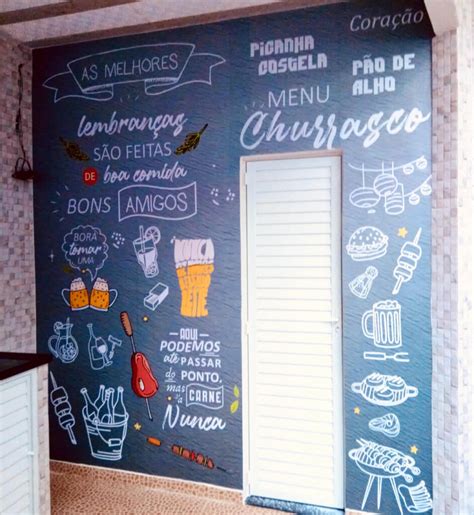 Coração
AS MELHORES
lembranças
SÃO FEITAS
DE boa comida
BONS AMIGOS
PICANHA
COSTELA
PÃO DE
ALHO
MENU
Churrasco
BORA
tomar
UMA
AQUI
PODEMOS
até PASSAR
do PONTO,
mas
CARNE
Nunca